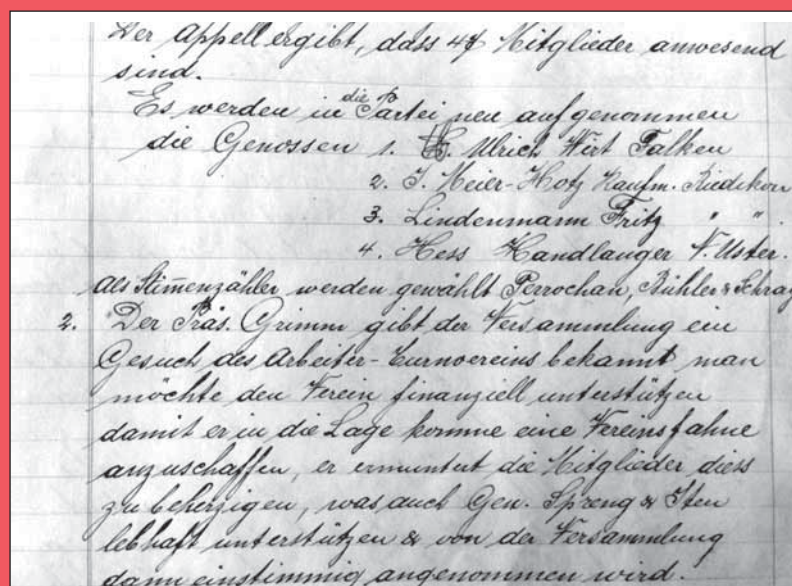 Der Appell ergibt, dass 47 Mitglieder anwesend
sind.
Es werden in die Partei neu aufgenommen
die Genossen 1. H. Ulrich Wirt Falken
2. J. Meier-Hotz Kaufm. Riedikon
3. Lindenmann Fritz " "
4. Hess Handlanger N. Uster.
Als Stim̅enzähler werden gewählt Perrochan, Bühler & Schrag
2. Der Präs. Grimm gibt der Versammlung ein
Gesuch des Arbeiter-Turnvereins bekannt man
möchte den Verein finanziell unterstützen
damit er in die Lage komme eine Vereinsfahne
anzuschaffen, er ermuntert die Mitglieder diess
zu beherzigen, was auch Gen. Spreng & Iten
lebhaft unterstützen & von der Versammlung
dann einstimmig angenommen wird.